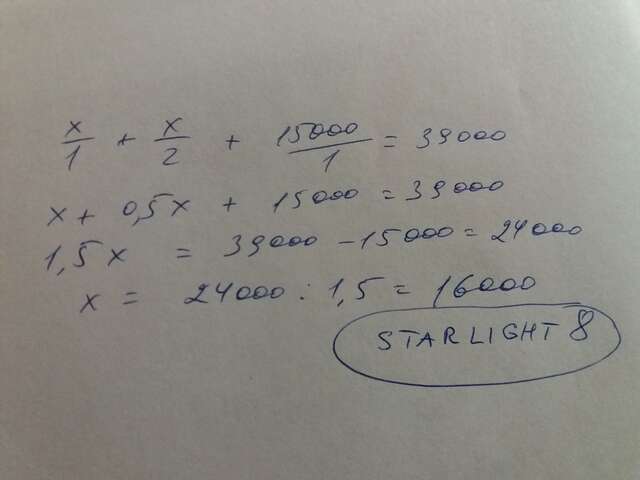 x/1 + x/2 + 15000/1 = 39000
x + 0,5x + 15000 = 39000
1,5x = 39000 - 15000 = 24000
x = 24000 : 1,5 = 16000
STARLIGHT 8